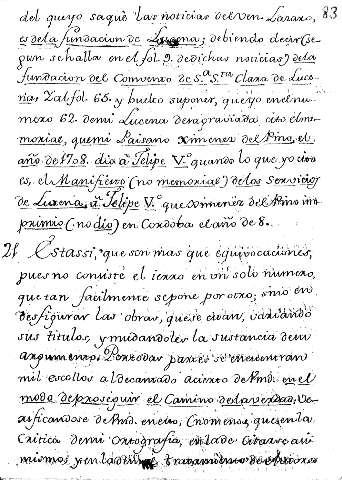 83
del que yo saquè las noticias del Ven. Lararo,
es de la fundacion de Lucena; debiendo decir (se-
gun se halla en el fol. 9. de dichas noticias) de la
fundacion del Convento de S.ᵃ S.ᵗᵃ Clara de Luce-
na. Y al fol. 65. y buelto supone, que yo en el nu-
mero 62. de mi Lucena desagraviada, cito el me-
morial, que mi Paisano Ximenez del Pino, el
año de 1708. dio à Felipe V.º quando lo que yo cito
es, el Manifiesto (no memorial) de los Servicios
de Lucena, à Felipe V.º que Ximenez del Pino im-
primio (no dio) en Cordoba el año de 8.
21 Estas si, que son mas que equivocaciones,
pues no consiste el ierro en un solo numero,
que tan facilmente se pone por otro; sino en
desfigurar las obras, que se citan, variando
sus titulos, y mudandoles la sustancia de su
argumento. Por todas partes se encuentran
mil escollos al decantado acierto de Vmd. en el
modo de proseguir el Camino de la verdad, Ve-
rificandose de Vmd. en esto, (no menos, que en la
Critica de mi Ortografia, en la de Citarse asi
mismo; y en la de el tratamiento de